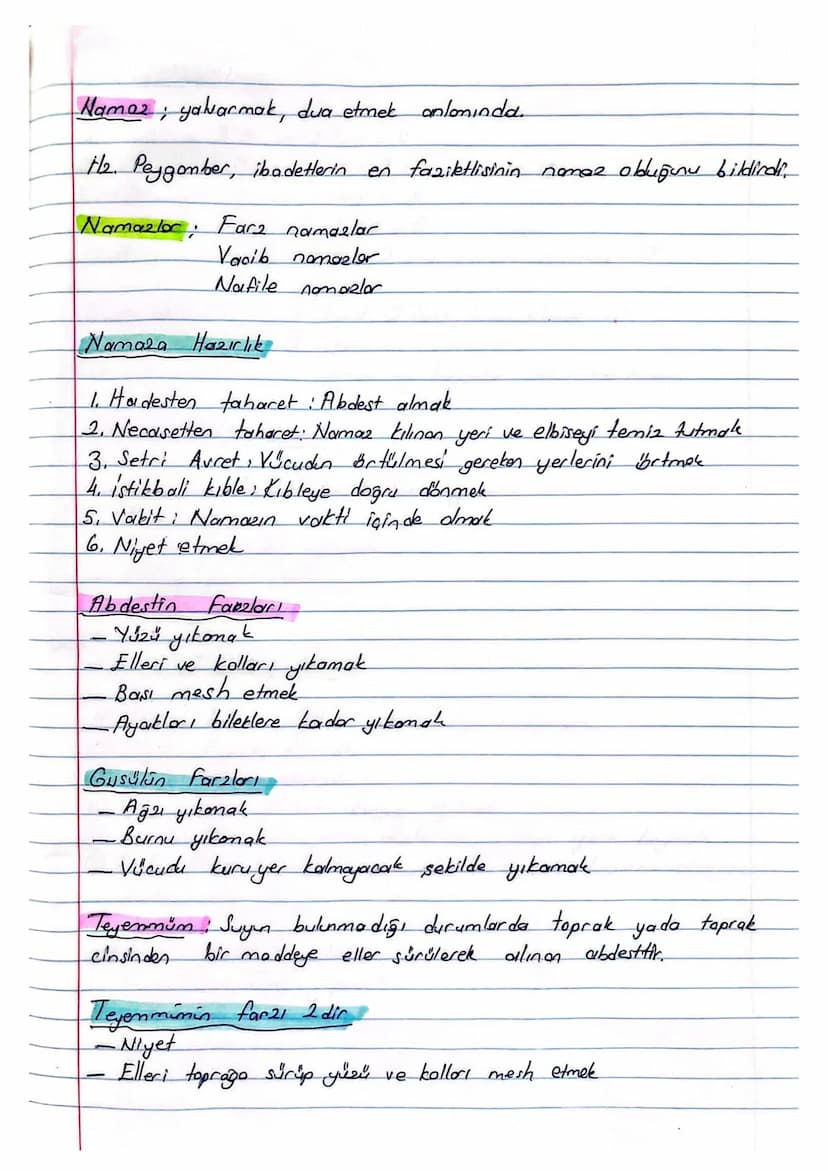 Namaz ; yalvarmak, dua etmek anlamında.
Hz. Peygamber, ibadetlerin en faziletlisinin namaz olduğunu bildirdi.
Namazlar ; Farz namazlar
Vacib namazlar
Nafile namazlar
Namaza Hazırlık
1. Hadesten taharet : Abdest almak
2. Necasetten taharet: Namaz kılınan yeri ve elbiseyi temiz tutmak
3. Setri Avret ; Vücudun örtülmesi gereken yerlerini örtmek
4. istikbali kıble ; Kıbleye doğru dönmek
5. Vakit ; Namazın vakti içinde olmak
6. Niyet etmek
Abdestin Farzları
- Yüzü yıkamak
- Elleri ve kolları yıkamak
- Başı mesh etmek
- Ayakları bileklere kadar yıkamak
Gusülün Farzları
- Ağzı yıkamak
- Burnu yıkamak
- Vücudu kuru yer kalmayacak şekilde yıkamak
Teyemmüm : Suyun bulunmadığı durumlarda toprak yada toprak
cinsinden bir maddeye eller sürülerek alınan abdesttir.
Teyemmimin farzı 2dir
- Niyet
- Elleri toprağa sürüp yüzü ve kolları mesh etmek